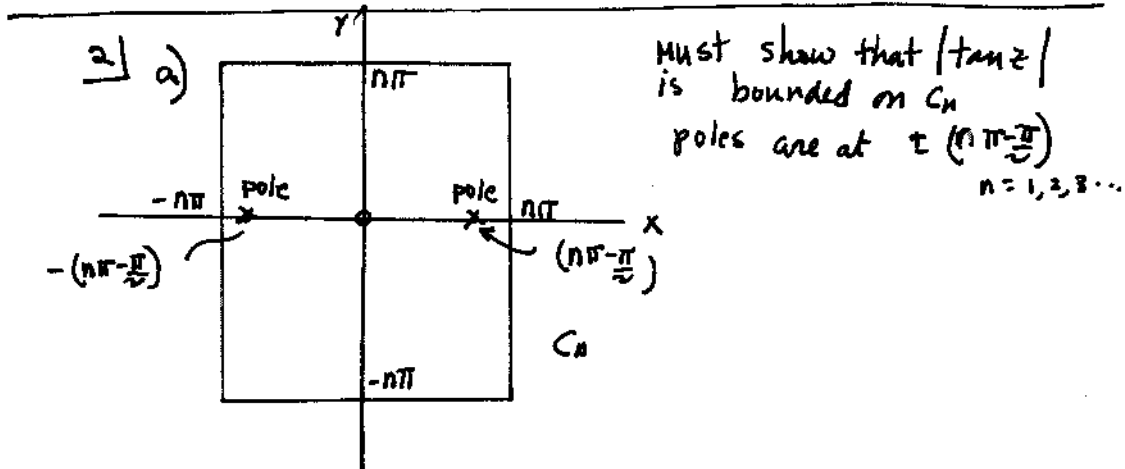 2] a)
y
nπ
Must show that |tan z|
is bounded on Cn
poles are at ± (nπ-π/2)
n = 1, 2, 3 ...
-nπ
pole
pole
nπ
x
-(nπ-π/2)
(nπ-π/2)
Cn
-nπ